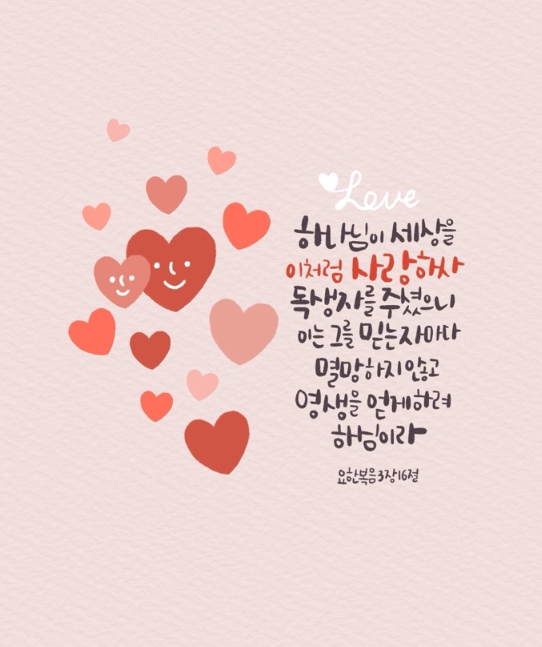 Love
하나님이 세상을
이처럼 사랑하사
독생자를 주셨으니
이는 그를 믿는자마다
멸망하지않고
영생을 얻게하려
하심이라
요한복음3장16절